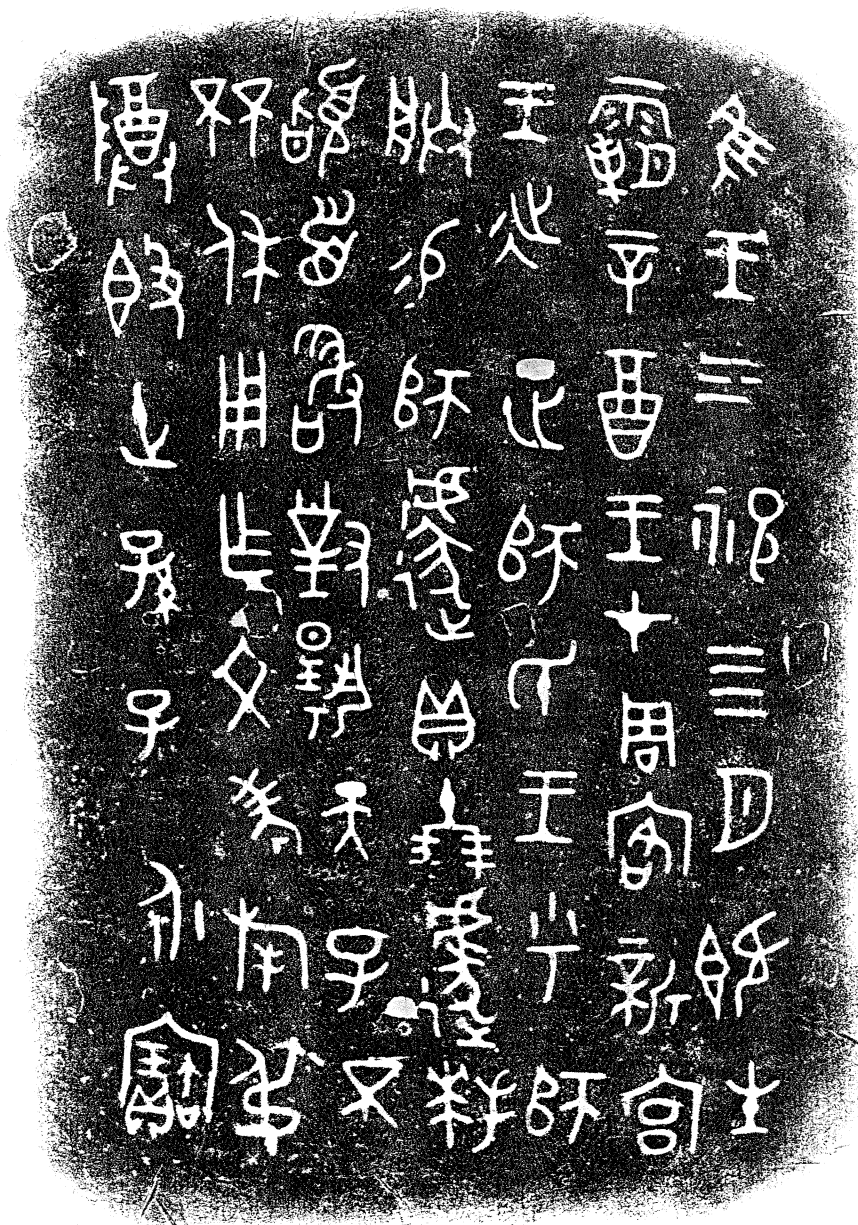 隹王三祀四月既生
霸辛酉王才周客新宮
王𢓊正師氏王乎師
朕易師遽貝十朋遽拜
𩒨首敢對揚天子不
𣎴休用乍文考旄弔
尊𣪘世孫子永寶